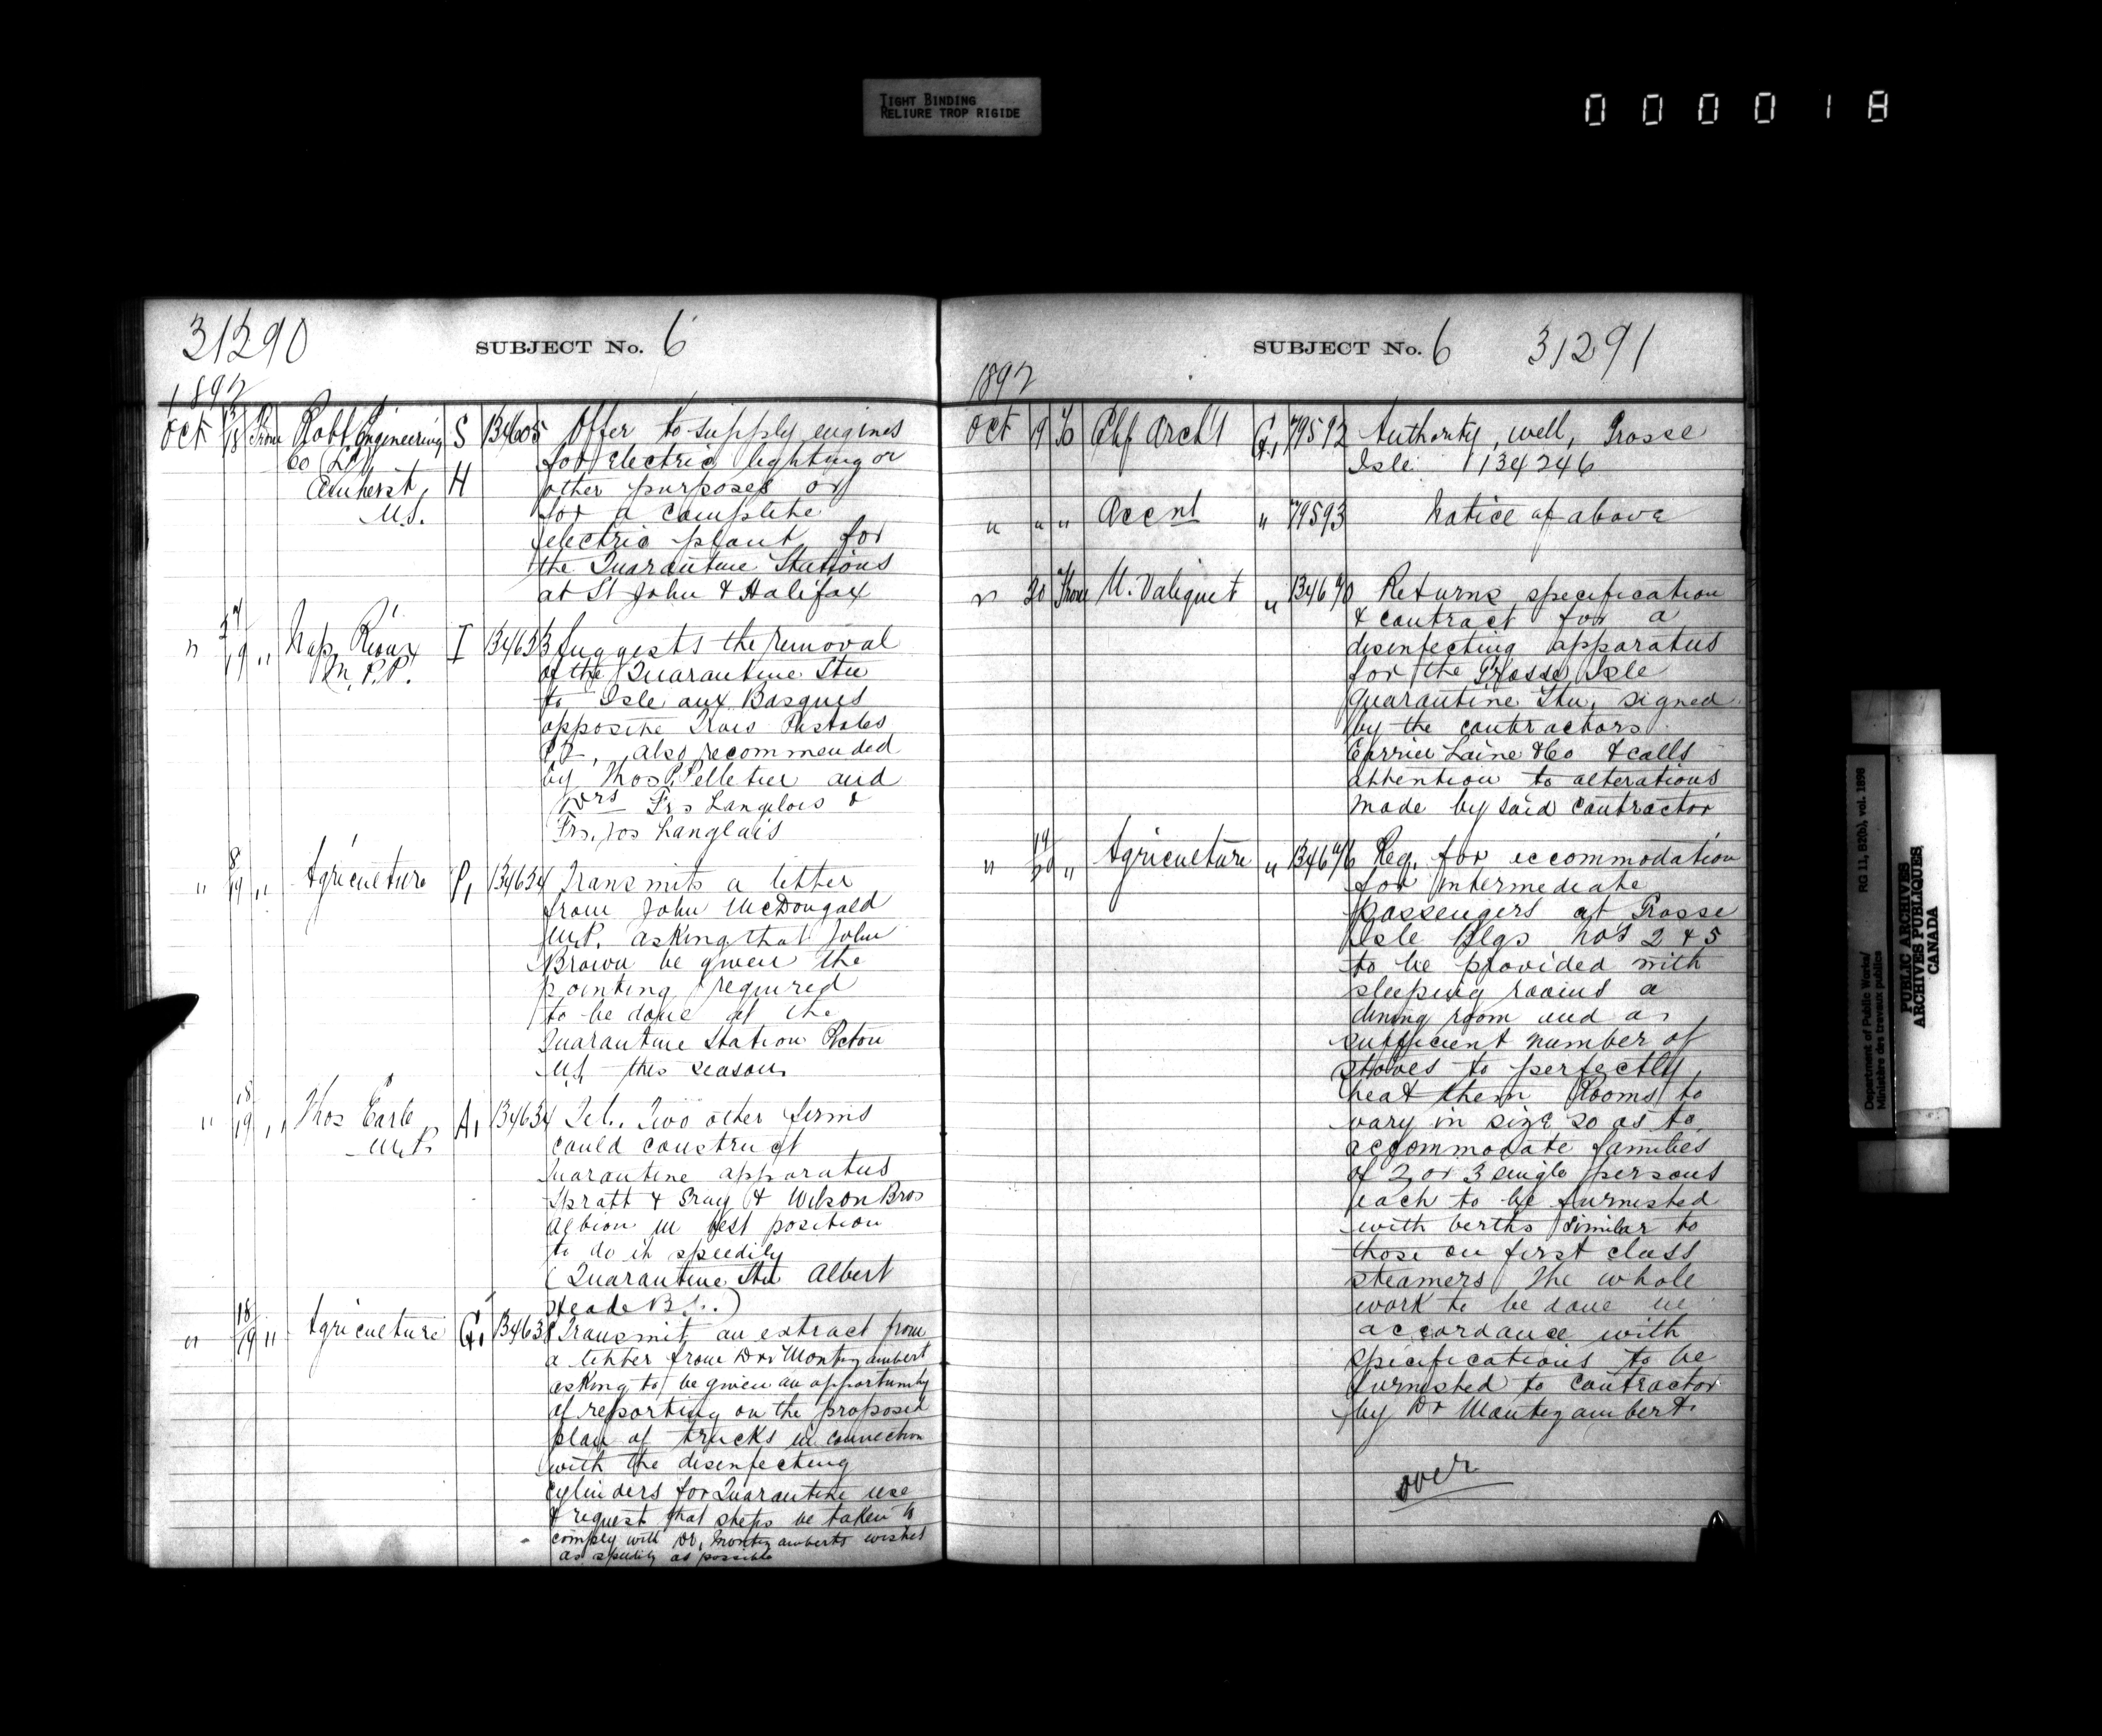 TIGHT BINDING
RELIURE TROP RIGIDE
000018
31290
SUBJECT No. 6
1892
Oct 18 From Robb Engineering S 134605 Offer to supply engines
Co for electric lighting or
Amherst, H other purposes or
N.S. for a complete
electric plant for
the Quarantine Stations
at St John & Halifax
" 19 " Nap. Rioux I 134633 Suggests the removal
M.P.P. of the Quarantine Stn
to Isle aux Basques
opposite Trois Pistoles
P2, also recommended
by Thos P. Pelletier and
Drs Frs Langlois &
Frs. Jos Langlais
" 8/19 " Agriculture P, 134634 Transmits a letter
from John McDougald
M.P. asking that John
Brown be given the
painting required
to be done at the
Quarantine Station Pictou
N.S. this season
" 18/19 " Thos Earle A, 134634 Tel. Two other firms
M.P. could construct
Quarantine apparatus
Spratt & Gray & Wilson Bros
Albion in best position
to do it speedily
(Quarantine Stn Albert
Heade B.C.)
" 18/19 " Agriculture G, 134638 Transmit an extract from
a letter from Dr Montizambert
asking to be given an opportunity
of reporting on the proposed
plan of trucks in connection
with the disinfecting
cylinders for Quarantine use
& request that steps be taken to
comply with Dr, Montizamberts wishes
as speedily as possible
SUBJECT No. 6 31291
1892
Oct 19 To Chf Archt G, 79592 Authority, well, Grosse
Isle 134246
" " " Accnt " 79593 Notice of above
" 20 From U. Valiquet " 134670 Returns specification
& contract for a
disinfecting apparatus
for the Grosse Isle
Quarantine Stn, signed
by the contractors
Carrier Laine & Co & calls
attention to alterations
made by said contractor
" 19/20 " Agriculture " 134676 Req. for accommodation
for intermediate
passengers at Grosse
Isle Blgs nos 2 & 5
to be provided with
sleeping rooms a
dining room and a
sufficient number of
stoves to perfectly
heat them Rooms to
vary in size so as to
accommodate families
of 2 or 3 single persons
each to be furnished
with berths similar to
those on first class
steamers The whole
work to be done in
accordance with
specifications to be
furnished to contractor
by Dr Montizambert.
over
Department of Public Works/
Ministère des travaux publics
RG 11, B2(b), vol. 1898
PUBLIC ARCHIVES
ARCHIVES PUBLIQUES
CANADA